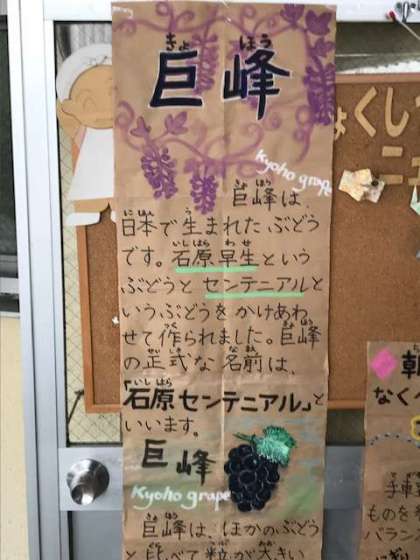 きょ ほう
巨峰
kyoho grape
巨峰は
日本で生まれたぶどう
です。石原早生という
ぶどうとセンテニアルと
いうぶどうをかけあわ
せて作られました。巨峰
の正式な名前は、
「石原センテニアル」と
いいます。
巨峰
Kyoho grape
巨峰は、ほかのぶどう
と比べて粒が大きい
ょくし
なく
ものを
バラン